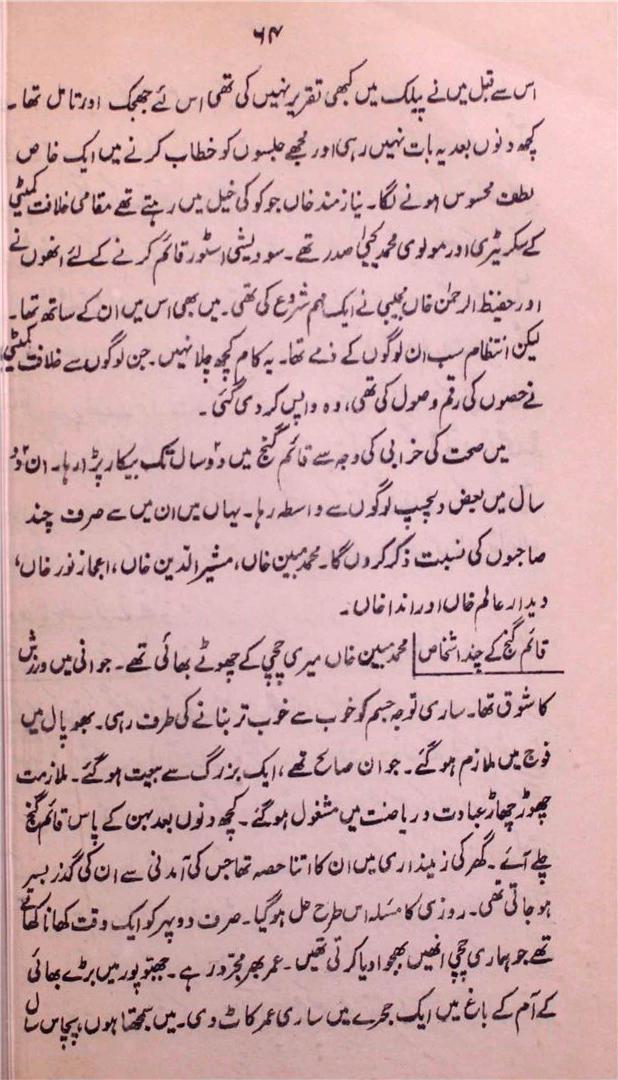 ۶۴
اس سے قبل میں نے پبلک میں کبھی تقریر نہیں کی تھی اس لئے جھجک اور تامل تھا۔
کچھ دنوں بعد یہ بات نہیں رہی اور مجھے جلسوں کو خطاب کرنے میں ایک خاص
لطف محسوس ہونے لگا۔ نیازمند خاں جو کوکی خیل میں رہتے تھے مقامی خلافت کمیٹی
کے سکریٹری اور مولوی محمد یحییٰ صدر تھے۔ سودیشی اسٹور قائم کرنے کے لئے انھوں نے
اور حفیظ الرحمٰن خاں مجیبی نے ایک مہم شروع کی تھی۔ میں بھی اس میں ان کے ساتھ تھا۔
لیکن انتظام سب ان لوگوں کے ذمے تھا۔ یہ کام کچھ چلا نہیں۔ جن لوگوں سے خلافت کمیٹی
نے حصوں کی رقم وصول کی تھی، وہ واپس کر دی گئی۔
میں صحت کی خرابی کی وجہ سے قائم گنج میں دو سال تک بیکار پڑا رہا۔ ان دو
سال میں بعض دلچسپ لوگوں سے واسطہ رہا۔ یہاں میں ان میں سے صرف چند
صاحبوں کی نسبت ذکر کروں گا۔ محمد مبین خاں، مشیر الدین خاں، اعجاز نور خاں،
دیدار عالم خاں اور اندا خاں۔
قائم گنج کے چند اشخاص محمد مبین خاں میری چچی کے چھوٹے بھائی تھے۔ جوانی میں ورزش
کا شوق تھا۔ ساری توجہ جسم کو خوب سے خوب تر بنانے کی طرف رہی۔ بھوپال میں
فوج میں ملازم ہو گئے۔ جوان صالح تھے، ایک بزرگ سے بیعت ہو گئے۔ ملازمت
چھوڑ چھاڑ عبادت و ریاضت میں مشغول ہو گئے۔ کچھ دنوں بعد بہن کے پاس قائم گنج
چلے آئے۔ گھر کی زمینداری میں ان کا اتنا حصہ تھا جس کی آمدنی سے ان کی گذر بسر
ہو جاتی تھی۔ روزی کا مسئلہ اس طرح حل ہو گیا۔ صرف دوپہر کو ایک وقت کھانا کھاتے
تھے جو ہماری چچی انھیں بھجوا دیا کرتی تھیں۔ عمر بھر مجرّد رہے۔ چھتوپور میں بڑے بھائی
کے آم کے باغ میں ایک حجرے میں ساری عمر کاٹ دی۔ میں سمجھتا ہوں، پچاس سال